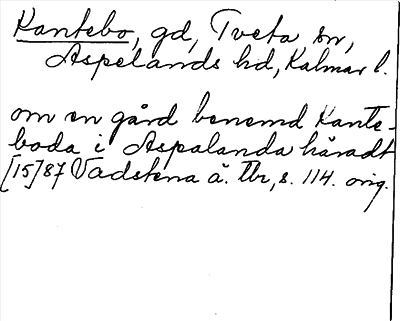 Kantebo, gd, Tveta sn,
Aspelands hd, Kalmar l.
om en gård benemd Kante-
boda i Aspalanda håradt
[15]87 Vadstena ä. tbr, s. 114. orig.